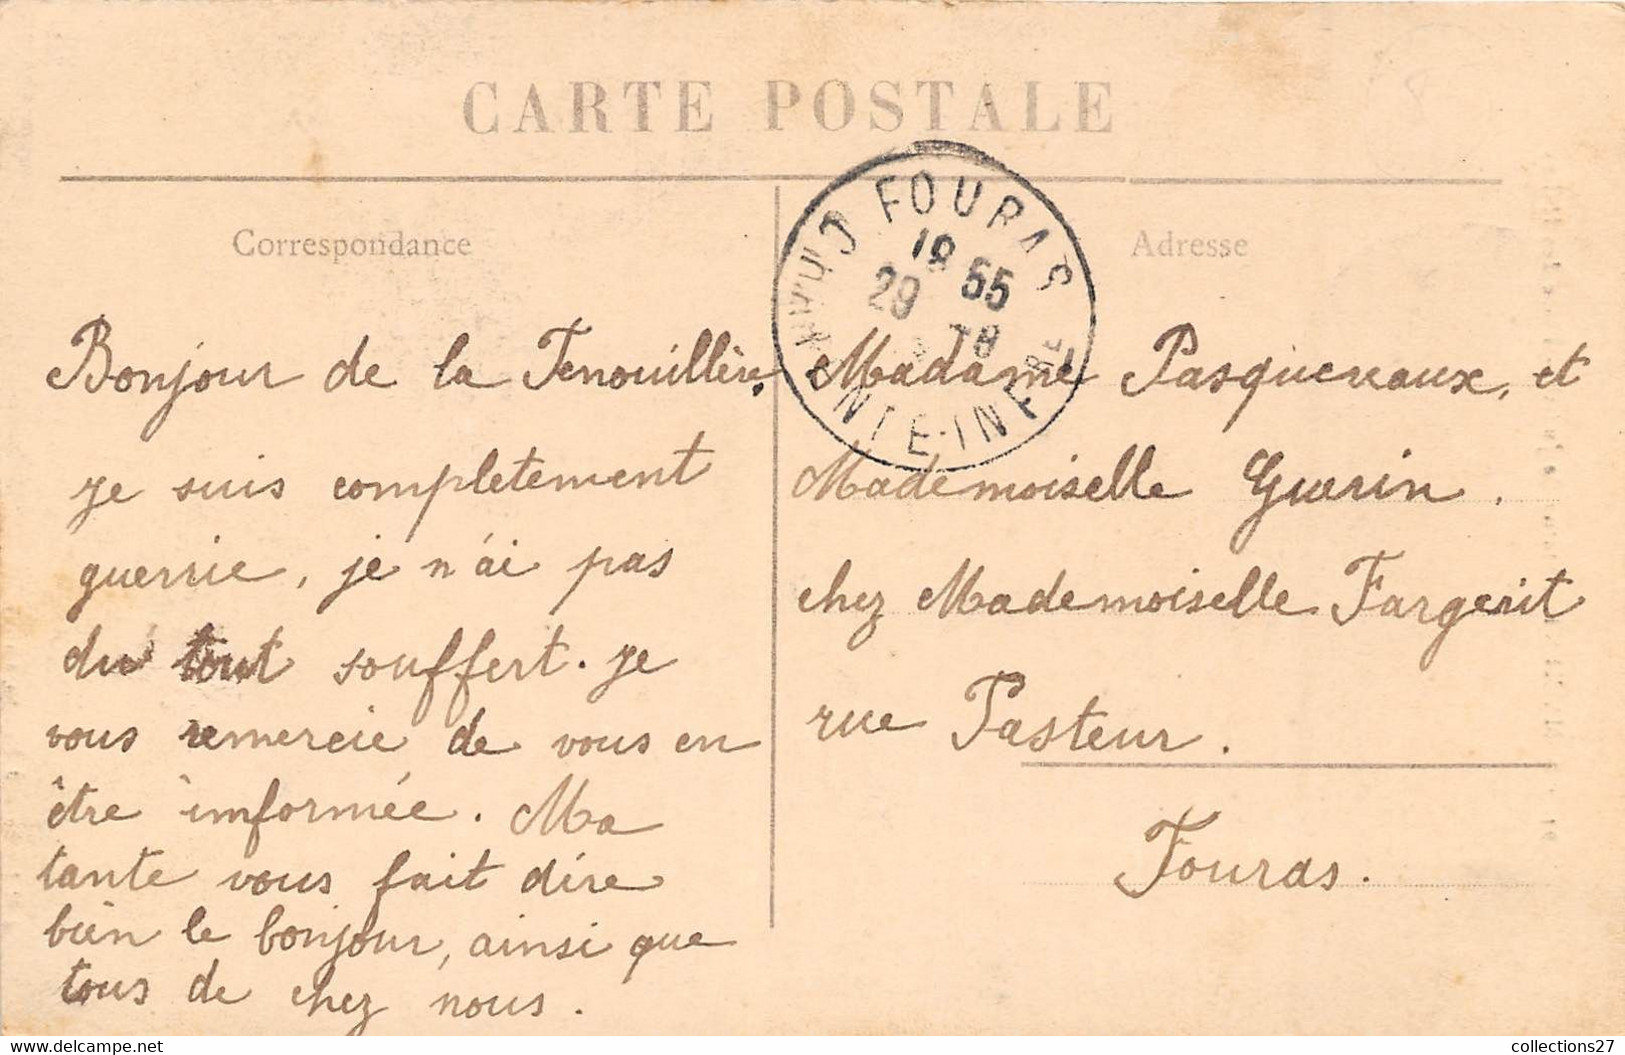 CARTE POSTALE
Correspondance
Adresse
FOURAS
18 55
29
INTE-INFRE
Bonjour de la Fenouillère,
je suis completement
guerrie, je n'ai pas
du tout souffert. Je
vous remercie de vous en
être informée. Ma
tante vous fait dire
bien le bonjour, ainsi que
tous de chez nous.
Madame Pasquereaux, et
Mademoiselle Guerin.
chez Mademoiselle Fargerit
rue Pasteur.
Fouras.
collections27